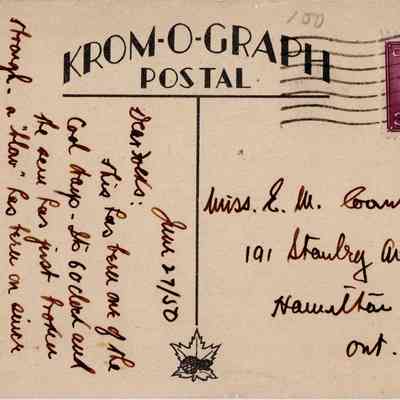 100
KROM-O-GRAPH
POSTAL
June 27/50
Dear Folks:
This has been one of the
Cool days - Its 6 oclock and
the sun has just broken
through - a "blow" has been on since
Miss. E. M.
191 Stanley Av
Hamilton
Ont.
3